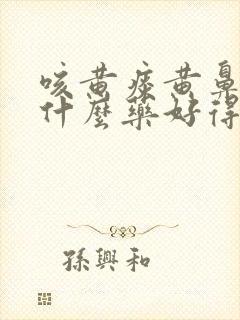 咳黄痰黄鼻
什麼藥好得
孫興和